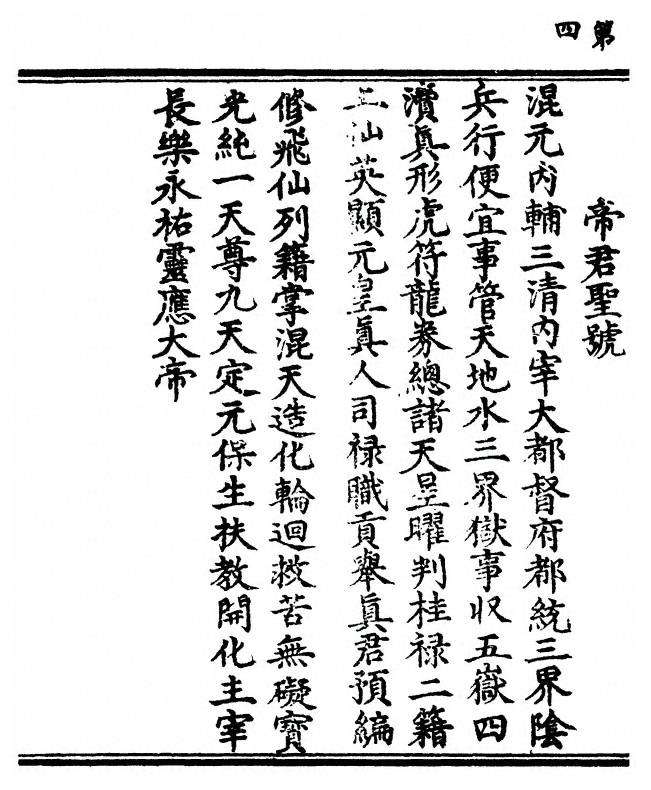 第四
帝君聖號
混元内輔三清内宰大都督府都統三界陰
兵行便宜事管天地水三界獄事収五嶽四
瀆眞形虎符龍劵總諸天星曜判桂禄二籍
上仙英顯元皇眞人司禄職貢舉眞君預編
修飛仙列籍掌混天造化輪迴救苦無礙寳
光純一天尊九天定元保生扶教開化主宰
長樂永祐靈應大帝